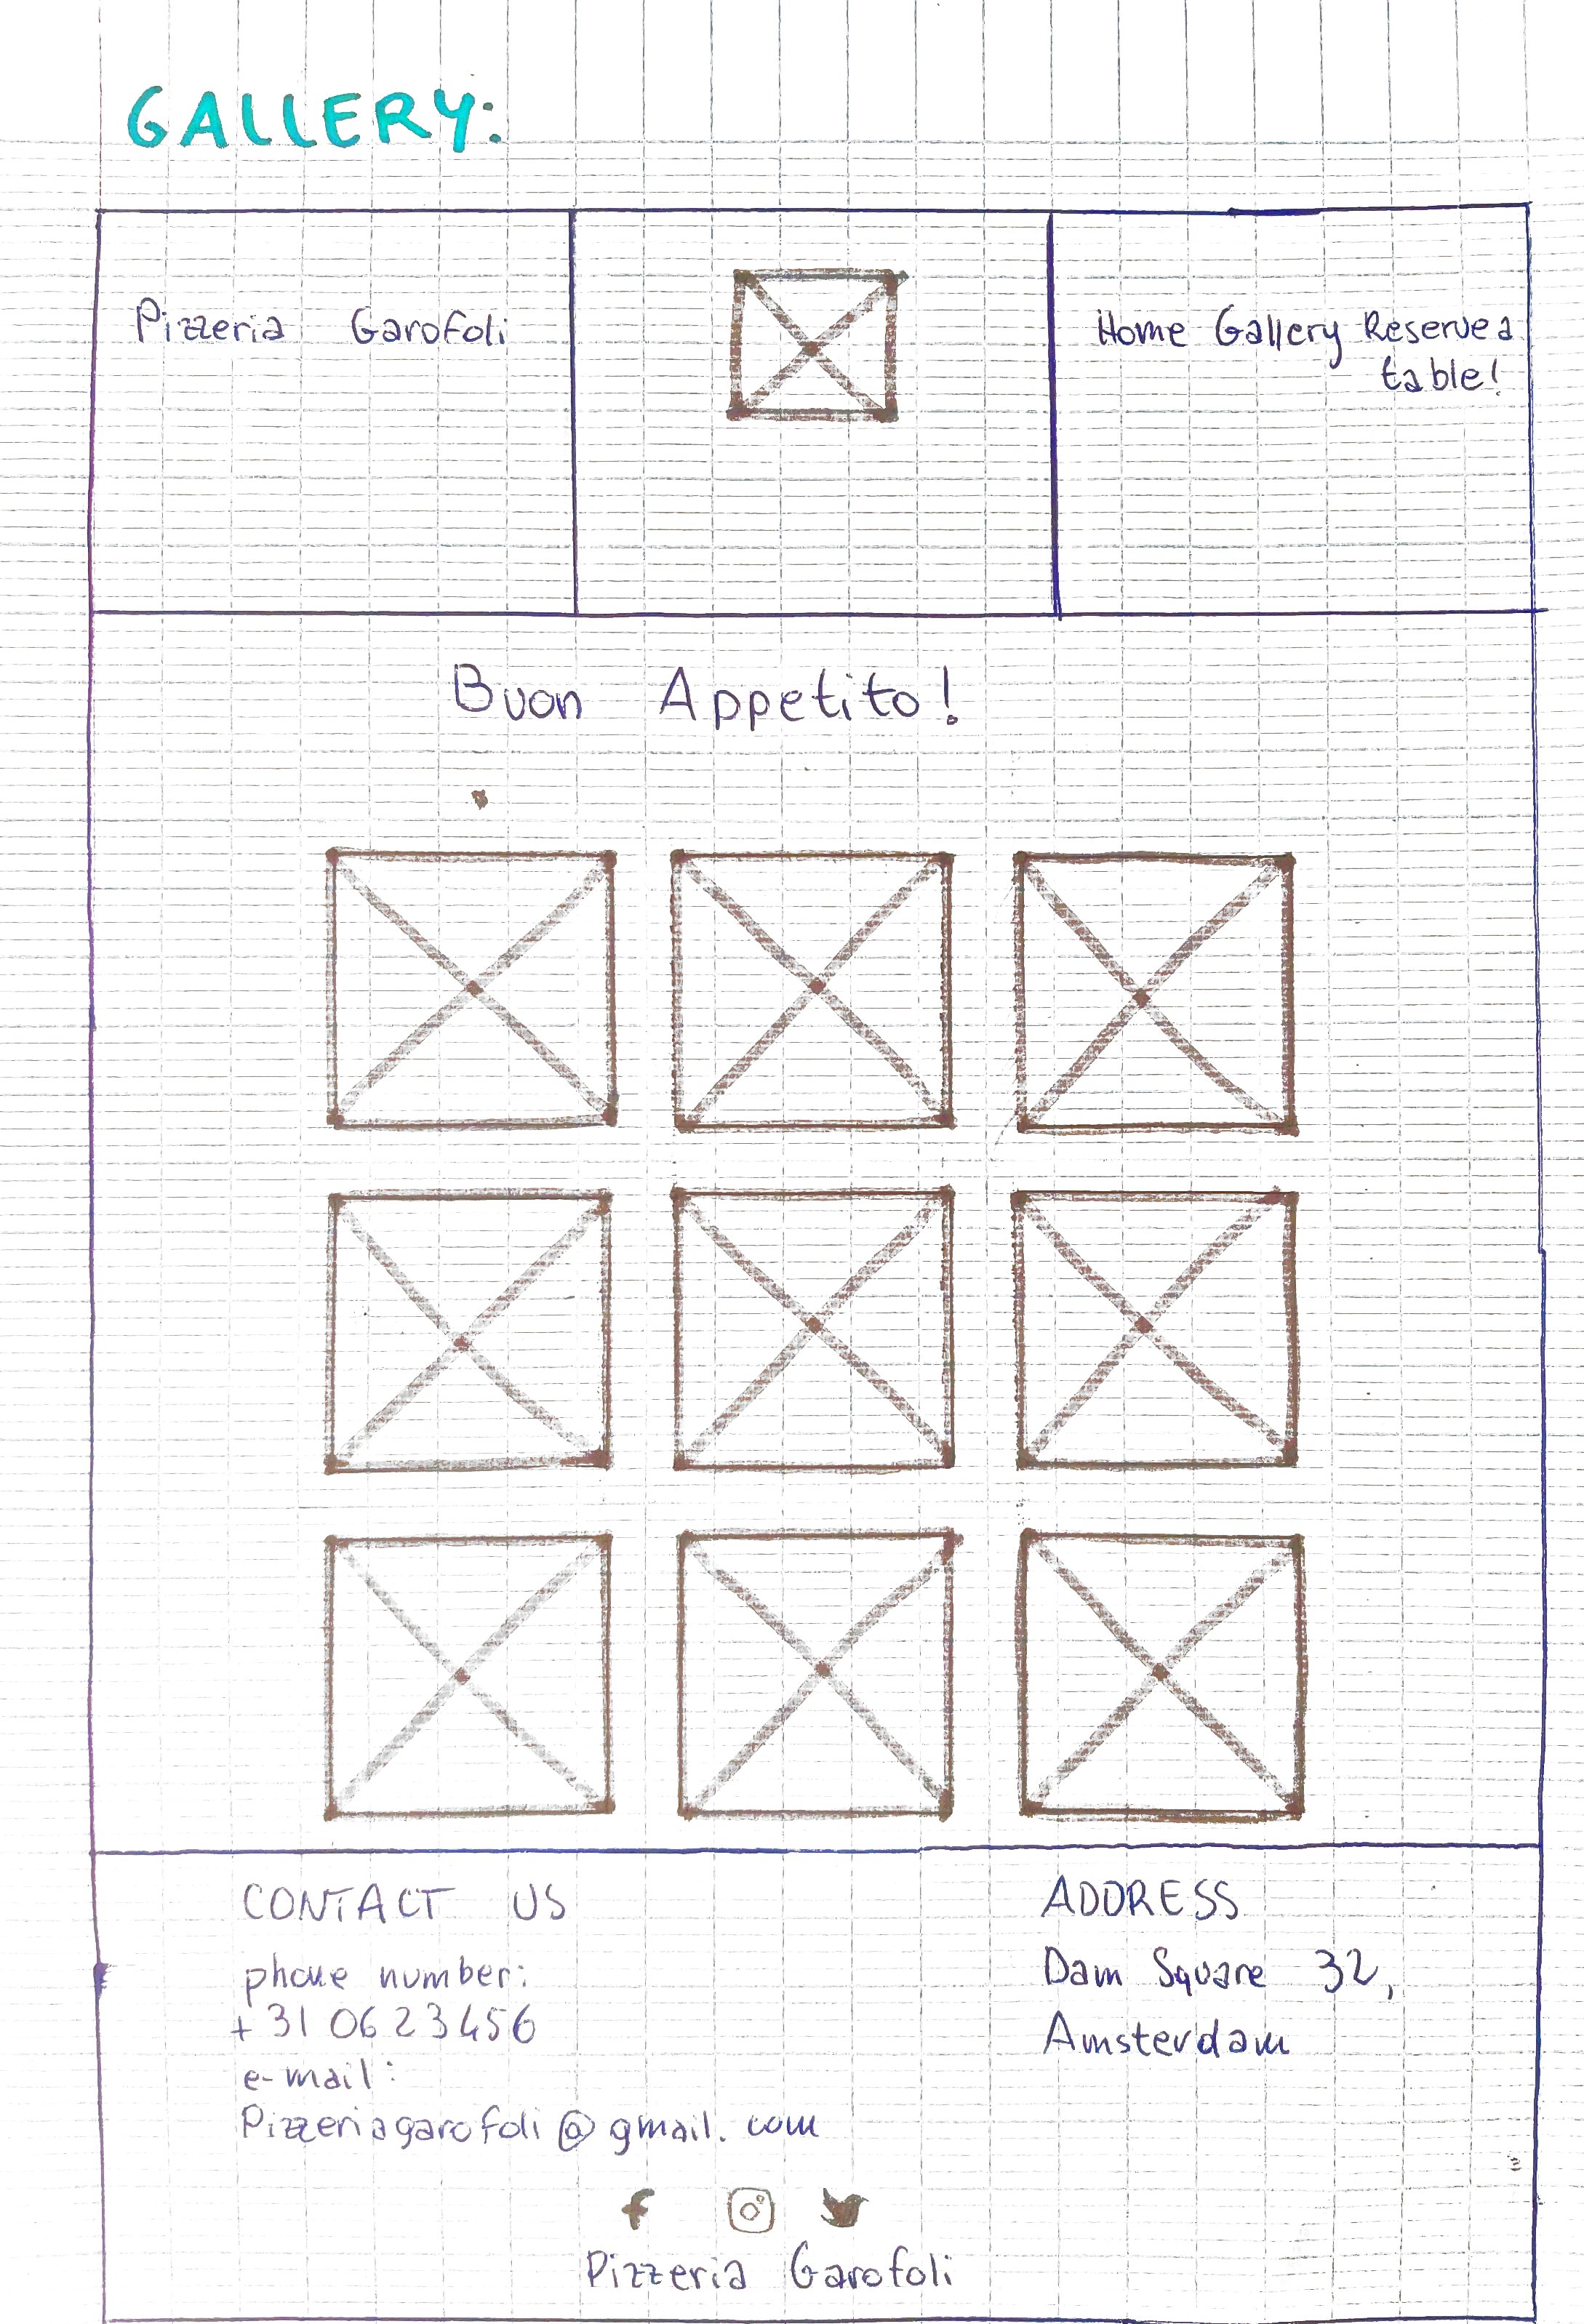 GALLERY:
Pizzeria Garofoli
Home Gallery Reserve a
table!
Buon Appetito!
CONTACT US
phone number:
+31 0623456
e-mail:
Pizzeriagarofoli@gmail.com
ADDRESS
Dam Square 32,
Amsterdam
f
Pizzeria Garofoli